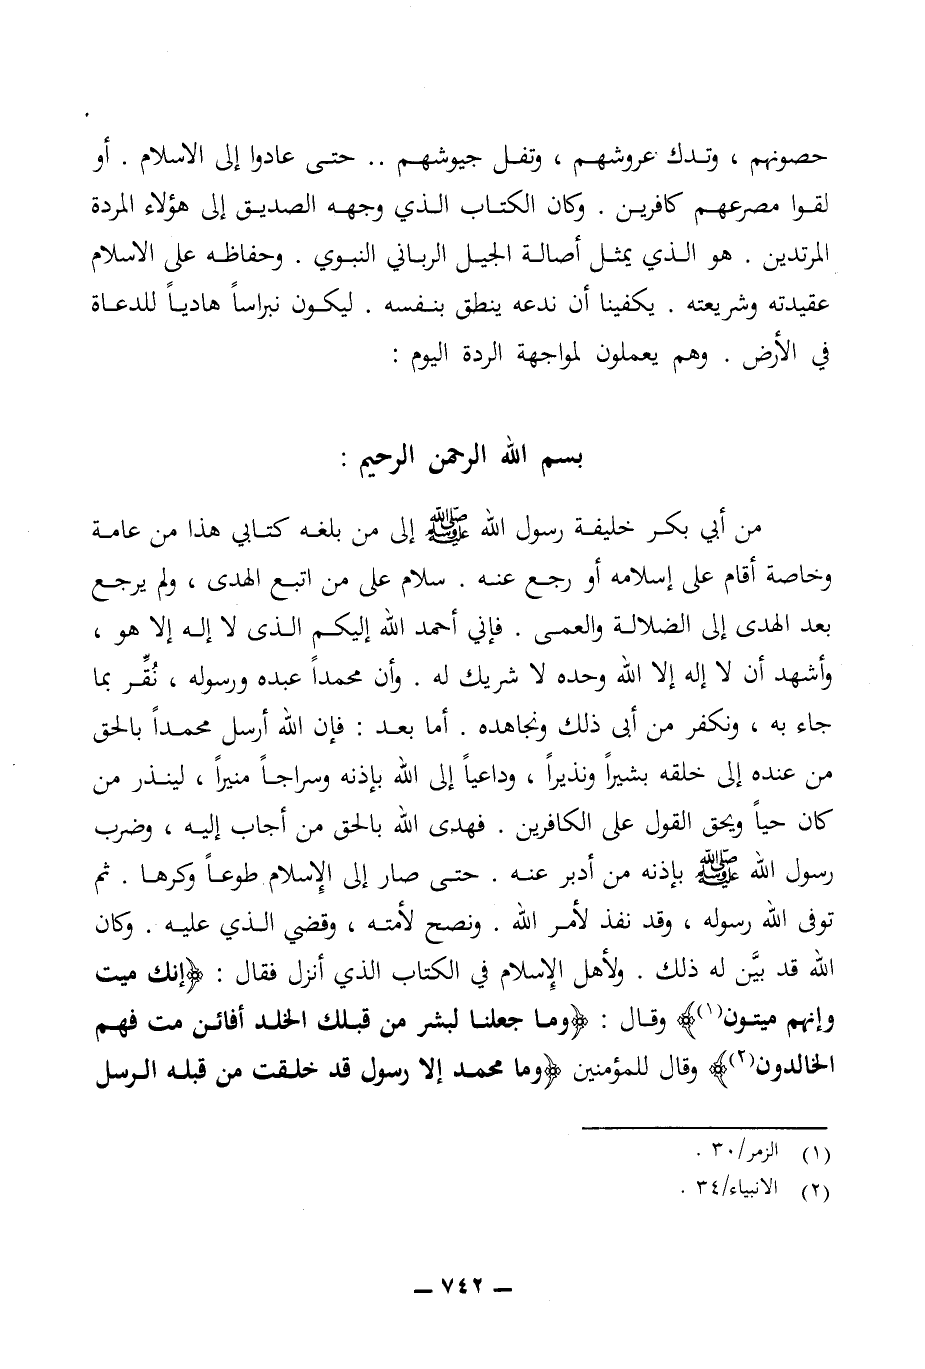 حصونهم ، وتدك عروشهم ، وتفل جيوشهم .. حتى عادوا إلى الاسلام . أو
لقوا مصرعهم كافرين . وكان الكتاب الذي وجهه الصديق إلى هؤلاء المردة
المرتدين . هو الذي يمثل أصالة الجيل الرباني النبوي . وحفاظه على الاسلام
عقيدته وشريعته . يكفينا أن ندعه ينطق بنفسه . ليكون نبراساً هادياً للدعاة
في الأرض . وهم يعملون لمواجهة الردة اليوم :
بسم الله الرحمن الرحيم :
من أبي بكر خليفة رسول الله ﷺ إلى من بلغه كتابي هذا من عامة
وخاصة أقام على إسلامه أو رجع عنه . سلام على من اتبع الهدى ، ولم يرجع
بعد الهدى إلى الضلالة والعمى . فإني أحمد الله إليكم الذى لا إله إلا هو ،
وأشهد أن لا إله إلا الله وحده لا شريك له . وأن محمداً عبده ورسوله ، نُقِّر بما
جاء به ، ونكفر من أبى ذلك ونجاهده . أما بعد : فإن الله أرسل محمداً بالحق
من عنده إلى خلقه بشيراً ونذيراً ، وداعياً إلى الله بإذنه وسراجاً منيراً ، لينذر من
كان حياً ويحق القول على الكافرين . فهدى الله بالحق من أجاب إليه ، وضرب
رسول الله ﷺ بإذنه من أدبر عنه . حتى صار إلى الإسلام طوعاً وكرها . ثم
توفى الله رسوله ، وقد نفذ لأمر الله . ونصح لأمته ، وقضي الذي عليه . وكان
الله قد بيَّن له ذلك . ولأهل الإسلام في الكتاب الذي أنزل فقال : ﴿إنك ميت
وإنهم ميتون(١)﴾ وقال : ﴿وما جعلنا لبشر من قبلك الخلد أفائن مت فهم
الخالدون(٢)﴾ وقال للمؤمنين ﴿وما محمد إلا رسول قد خلقت من قبله الرسل
(١) الزمر/٣٠ .
(٢) الانبياء/٣٤ .
— ٧٤٢ —